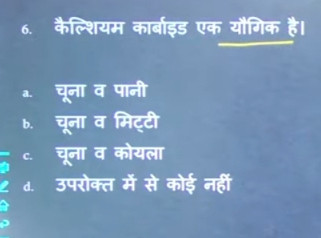 6. कैल्शियम कार्बाइड एक यौगिक है।
a. चूना व पानी
b. चूना व मिट्टी
c. चूना व कोयला
d. उपरोक्त में से कोई नहीं